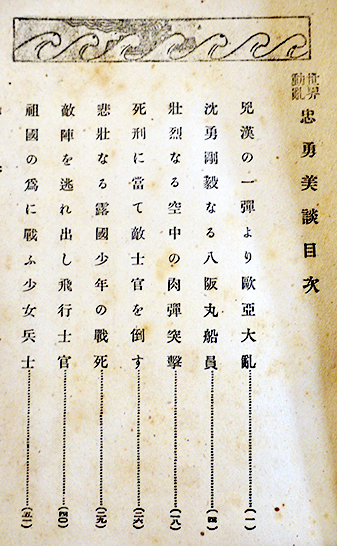 世界動亂 忠勇美談目次
兇漢の一彈より歐亞大亂……(一)
沈勇剛毅なる八阪丸船員……(一四)
壯烈なる空中の肉彈突擊……(一八)
死刑に當て敵士官を倒す……(二六)
悲壯なる露國少年の戰死……(三九)
敵陣を逃れ出し飛行士官……(四〇)
祖國の爲に戰ふ少女兵士……(五一)